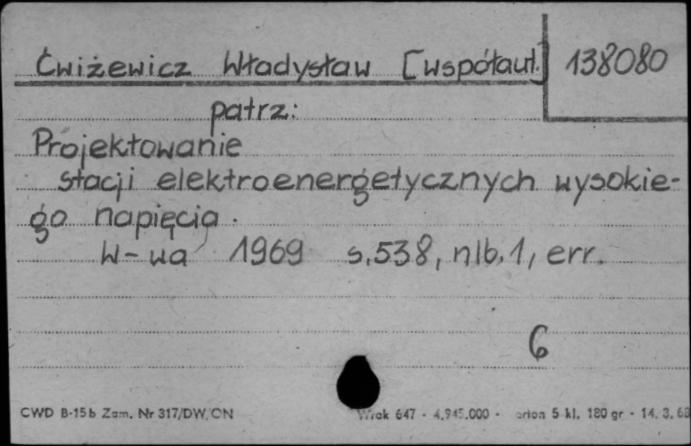 Ćwiżewicz Władysław [współaut.] 138080
patrz:
Projektowanie
stacji elektroenergetycznych wysokie-
go napięcia.
W-wa 1969 s.538, nlb.1, err.
6
CWD B-15b Zam. Nr 317/DW/ON 647 - 4.945.000 - 5 kl. 180 gr - 14. 3. 68